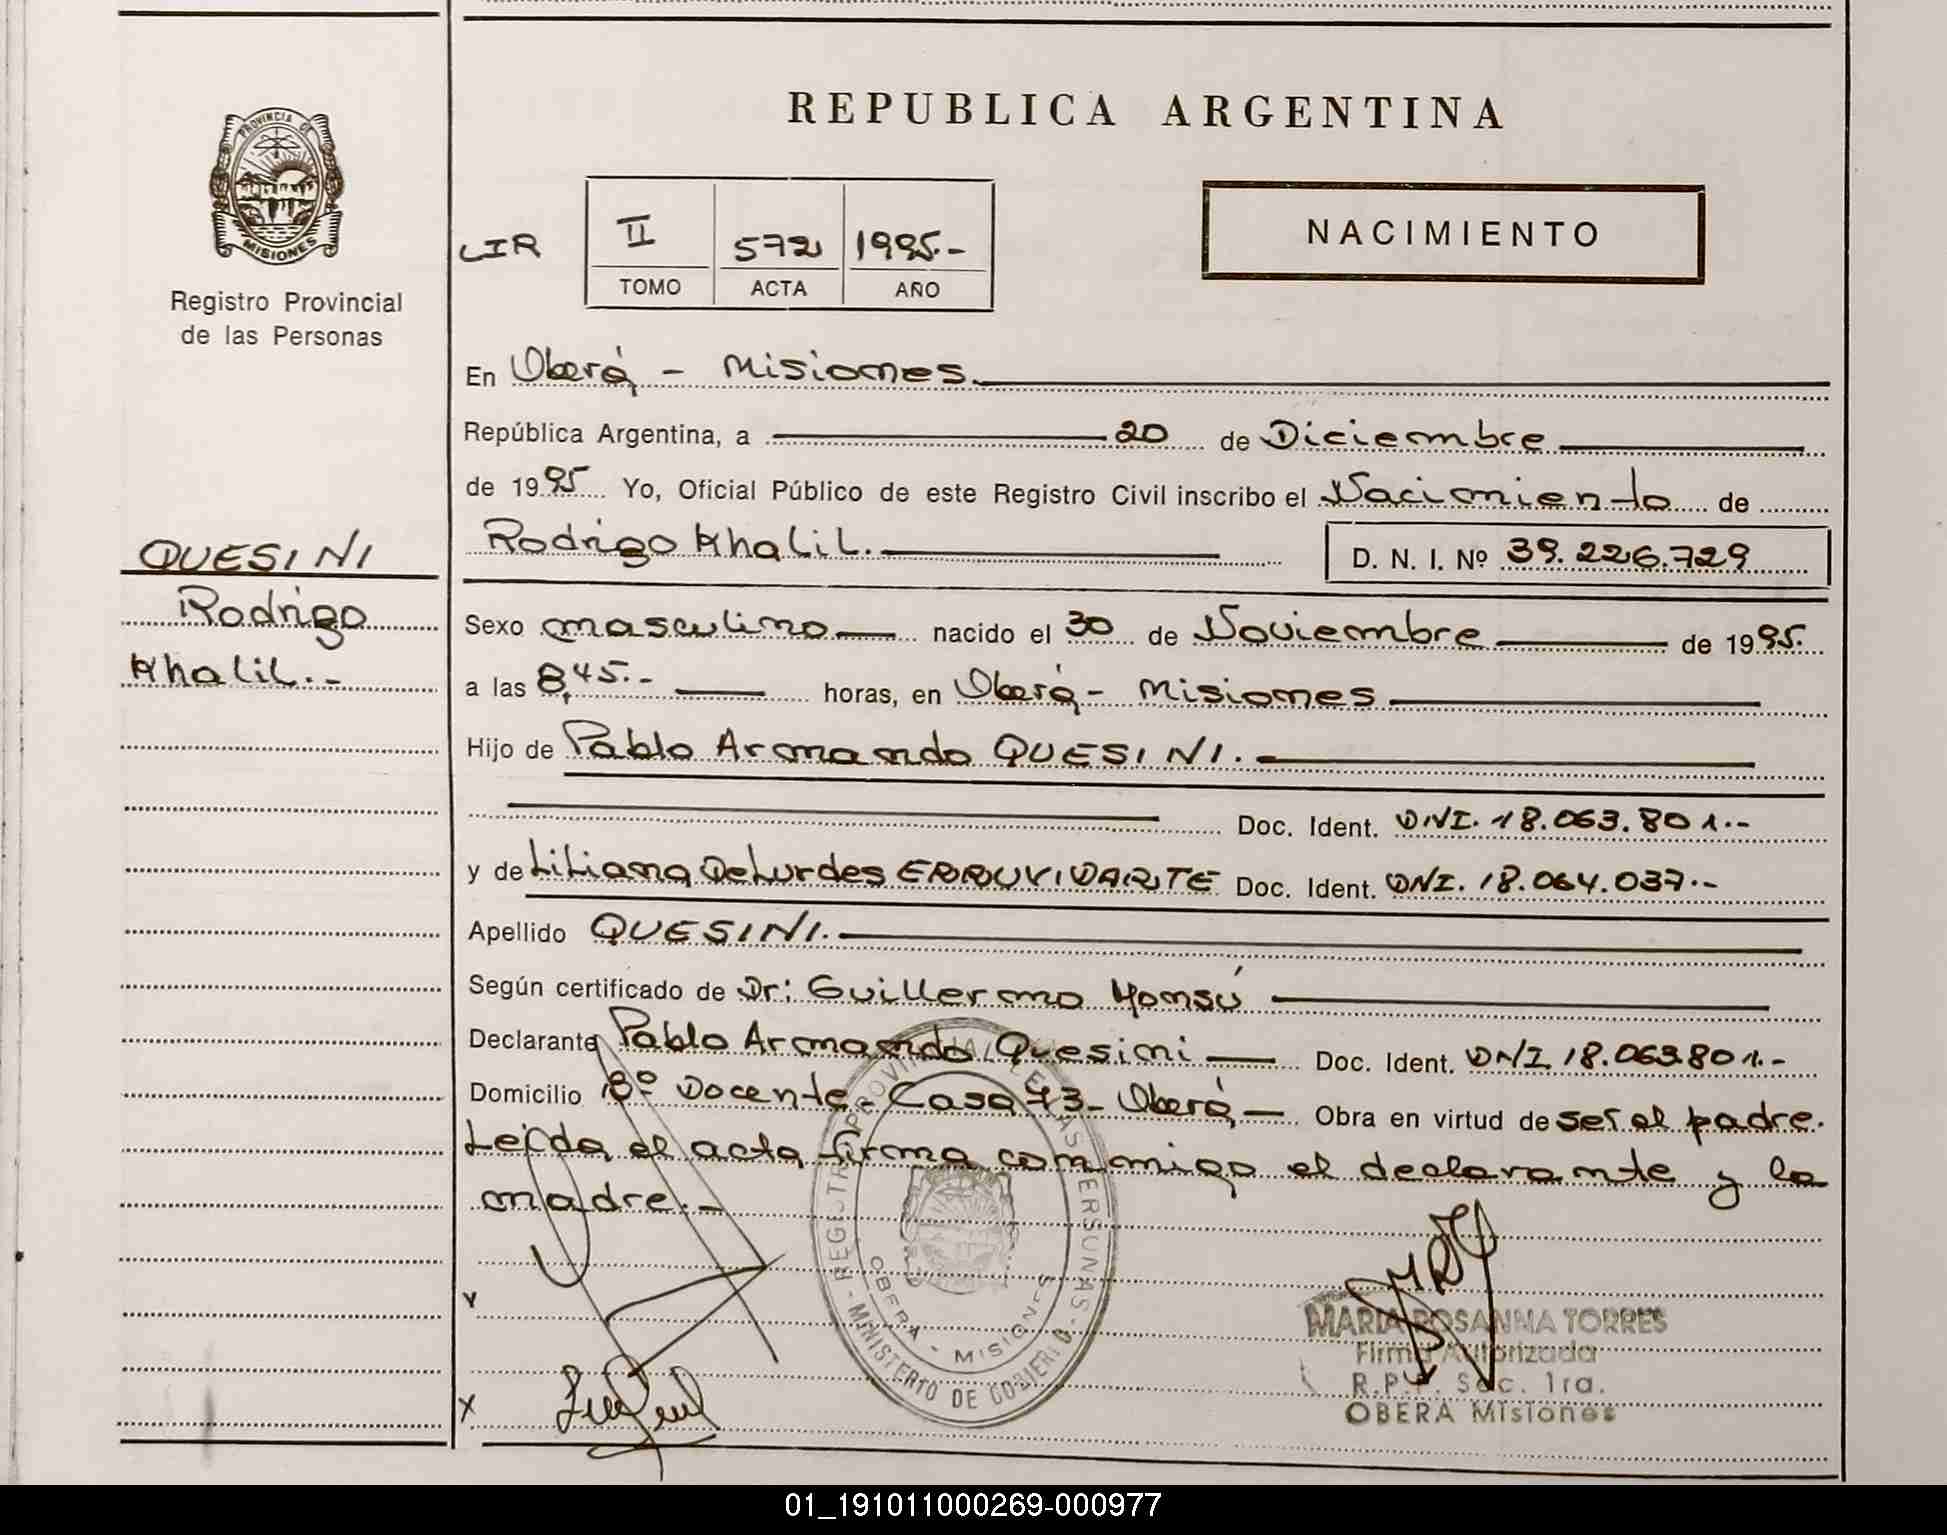 REPUBLICA ARGENTINA
PROVINCIA DE
MISIONES
Registro Provincial
de las Personas
LIR
II 572 1995.-
TOMO ACTA AÑO
NACIMIENTO
En Oberá - Misiones.
República Argentina, a 20 de Diciembre
de 1995 Yo, Oficial Público de este Registro Civil inscribo el Nacimiento de
Rodrigo Khalil. D. N. I. Nº 39.226.729
QUESINI
Rodrigo
Khalil.-
Sexo masculino nacido el 30 de Noviembre de 1995.
a las 8,45.- horas, en Oberá - Misiones
Hijo de Pablo Armando QUESINI.
Doc. Ident. DNI. 18.063.801.-
y de Liliana De Lurdes ERRUVIDARTE Doc. Ident. DNI. 18.064.037.-
Apellido QUESINI.
Según certificado de Dr: Guillermo Monsú
Declarante Pablo Armando Quesini Doc. Ident. DNI 18.063.801.-
Domicilio Bº Docente - Casa 73 - Oberá Obra en virtud de ser el padre.
Leída el acta firma conmigo el declarante y la
madre.-
REGISTRO PROVINCIAL DE LAS PERSONAS
OBERA - MISIONES
MINISTERIO DE GOBIERNO
X
MARIA ROSANNA TORRES
Firma Autorizada
R.P.P. Sec. 1ra.
OBERA Misiones
01_191011000269-000977